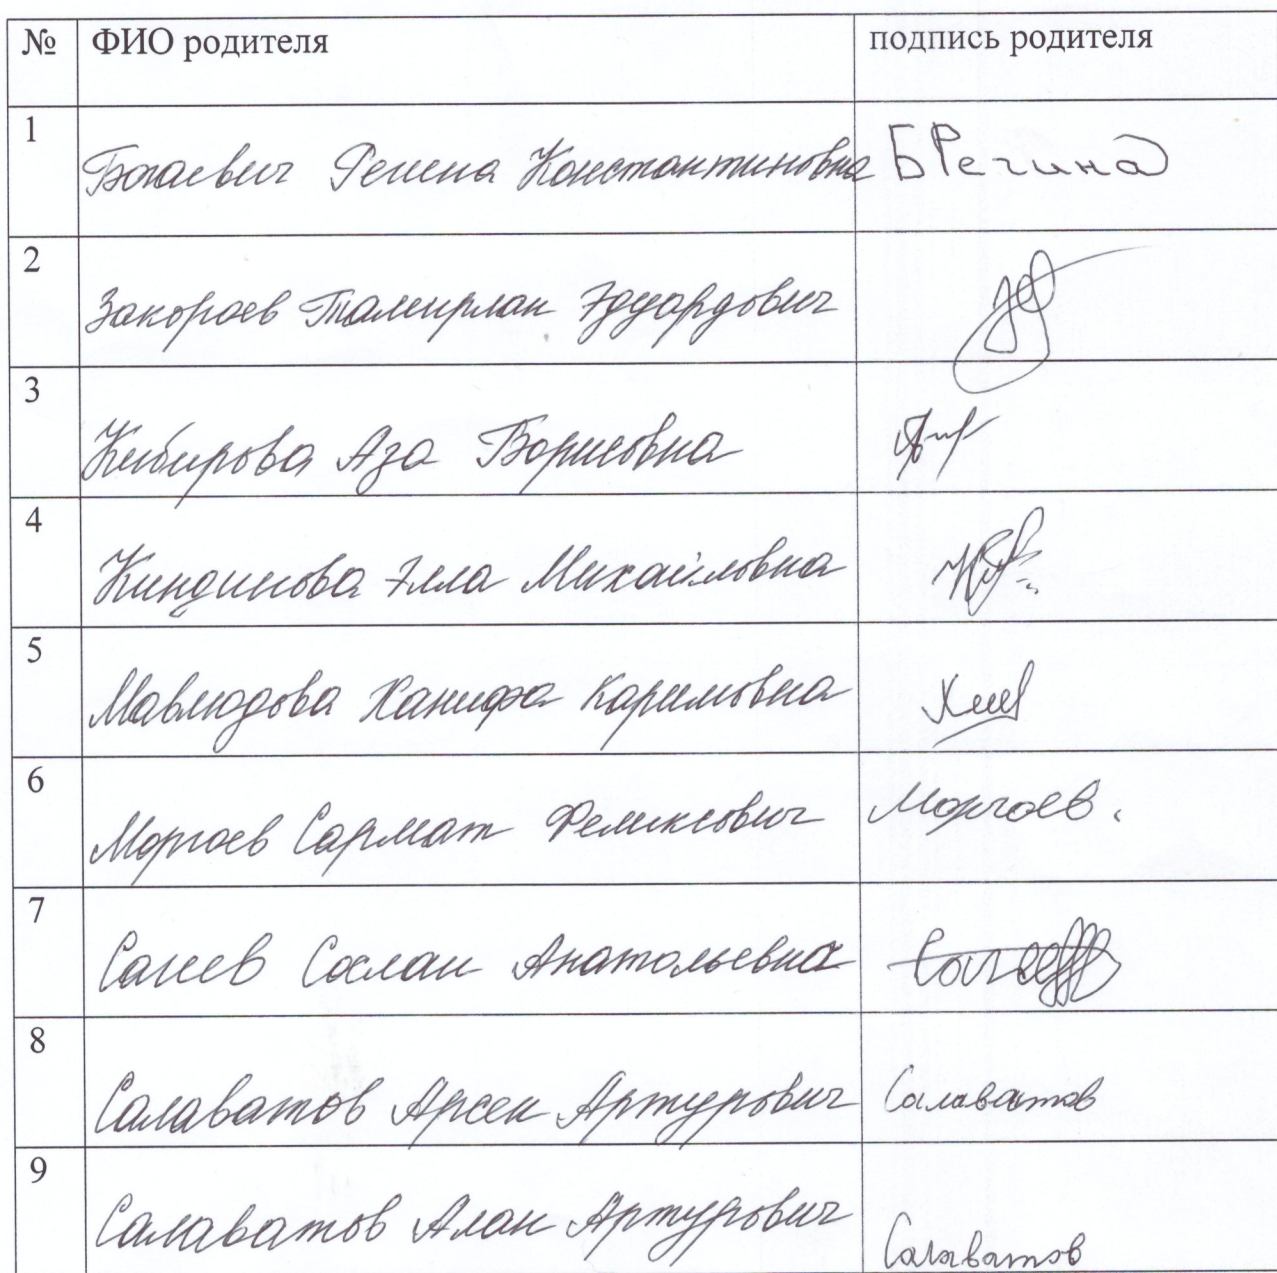 № ФИО родителя подпись родителя
1 Регина Константиновна БРегина
2 Закораев Тамирлан Эдуардович
3 Кибирова Аза Борисовна
4 Киндинова Элла Михайловна
5 Мавлюдова Ханифа Каримовна
6 Моргоев Сармат Феликсович Моргоев.
7 Сослан Анатольевна
8 Салаватов Арсен Артурович Салаватов
9 Салаватов Алан Артурович Салаватов